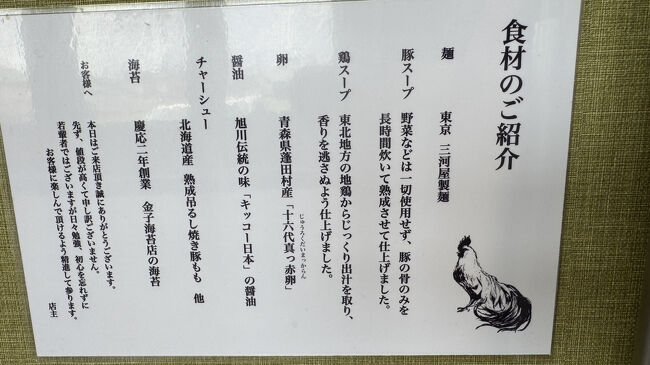 食材のご紹介
麺　東京　三河屋製麺
豚スープ　野菜などは一切使用せず、豚の骨のみを
長時間炊いて熟成させて仕上げました。
鶏スープ　東北地方の地鶏からじっくり出汁を取り、
香りを逃さぬよう仕上げました。
卵　青森県蓬田村産「十六代真っ赤卵」
じゅうろくだいまっからん
醤油　旭川伝統の味「キッコー日本」の醤油
チャーシュー
北海道産　熟成吊るし焼き豚もも　他
海苔　慶応二年創業　金子海苔店の海苔
お客様へ
本日はご来店頂き誠にありがとうございます。
先ず、値段が高くて申し訳ございません。
若輩者ではございますが日々勉強、初心を忘れずに
お客様に楽しんで頂けるよう精進して参ります。
店主